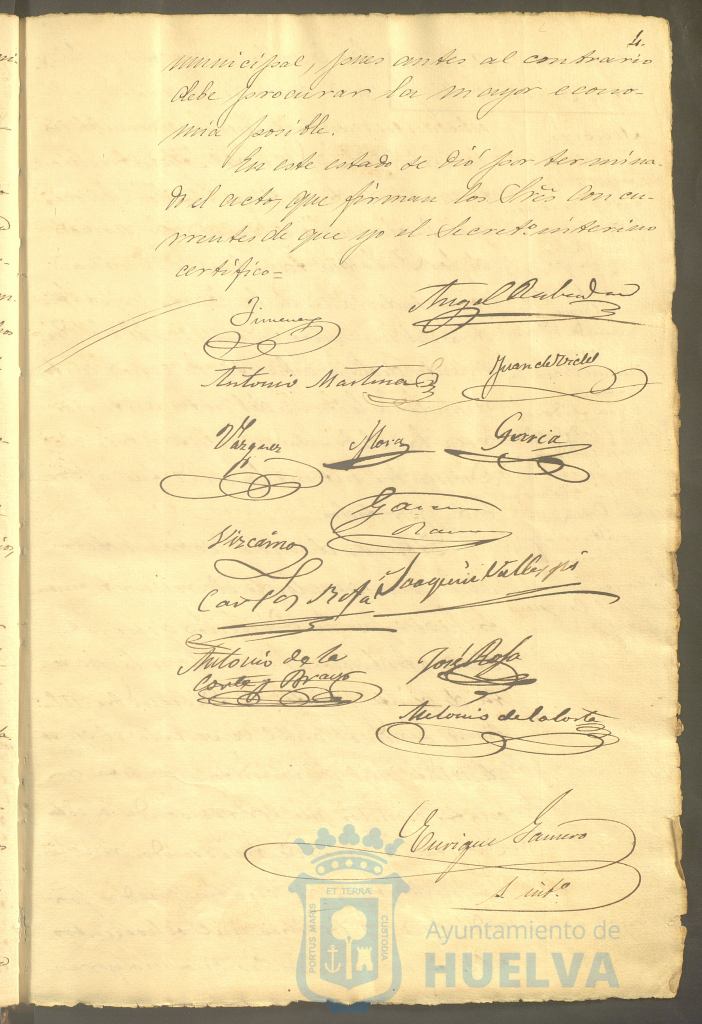 4.
municipal, pues antes al contrario
debe procurar la mayor econo-
mia posible.
En este estado se dió por termina-
do el acto, que firman los Sres̃ Concu-
rrentes de que yo el Secretº interino
certifico=
Jimenez
Angel
Antonio Martinez
Juan de Vides
Vázquez Mora Garcia
Vizcaino
Garcia
Ramos
Carlos Rofá Joaquín Vallespí
Antonio de la
Corte y Bravo
José Rofa
Antonio de la Corte
Enrique Gamero
S. intº
ET TERRÆ
PORTUS MARIS
CUSTODIA
Ayuntamiento de
HUELVA